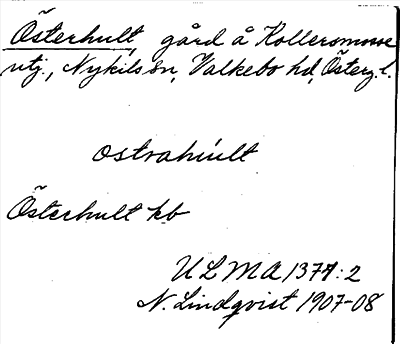 Österhult, gård å Kollersmosse
utj., Nykils sn, Valkebo hd, Österg. l.
ostrahult
Österhult kb
ULMA 1371:2
N. Lindqvist 1907-08